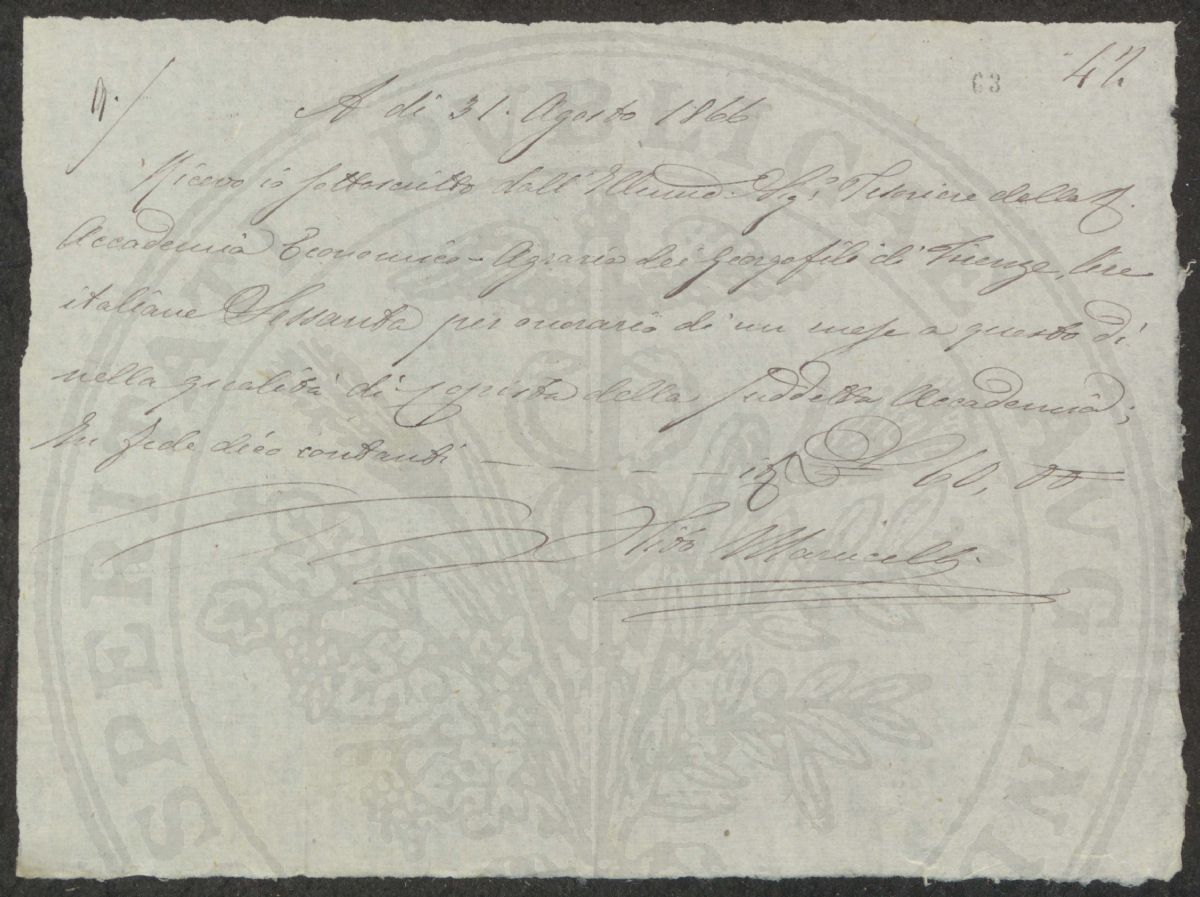 63
47.
A dì 31. Agosto 1866
Ricevo io sottoscritto dall'Illmo. Sigr. Tesoriere della R.
Accademia Economico-Agraria dei Georgofili di Firenze, lire
italiane Sessanta per onorario di un mese a questo dì
nella qualità di Copista della suddetta Accademia;
In fede dico contanti — — — — — it £ 60, 00
Marucelli
PUBLICAE
SPERITATI
AUGEN